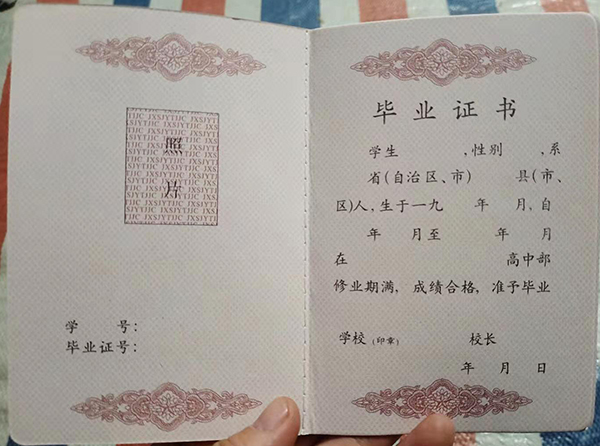 JXSJYTJJC JXS
照
片
学 号:
毕业证号:
毕业证书
学生 ,性别 ,系
省(自治区、市) 县(市、
区)人,生于一九 年 月,自
年 月至 年 月
在 高中部
修业期满,成绩合格,准予毕业
学校(印章) 校长
年 月 日